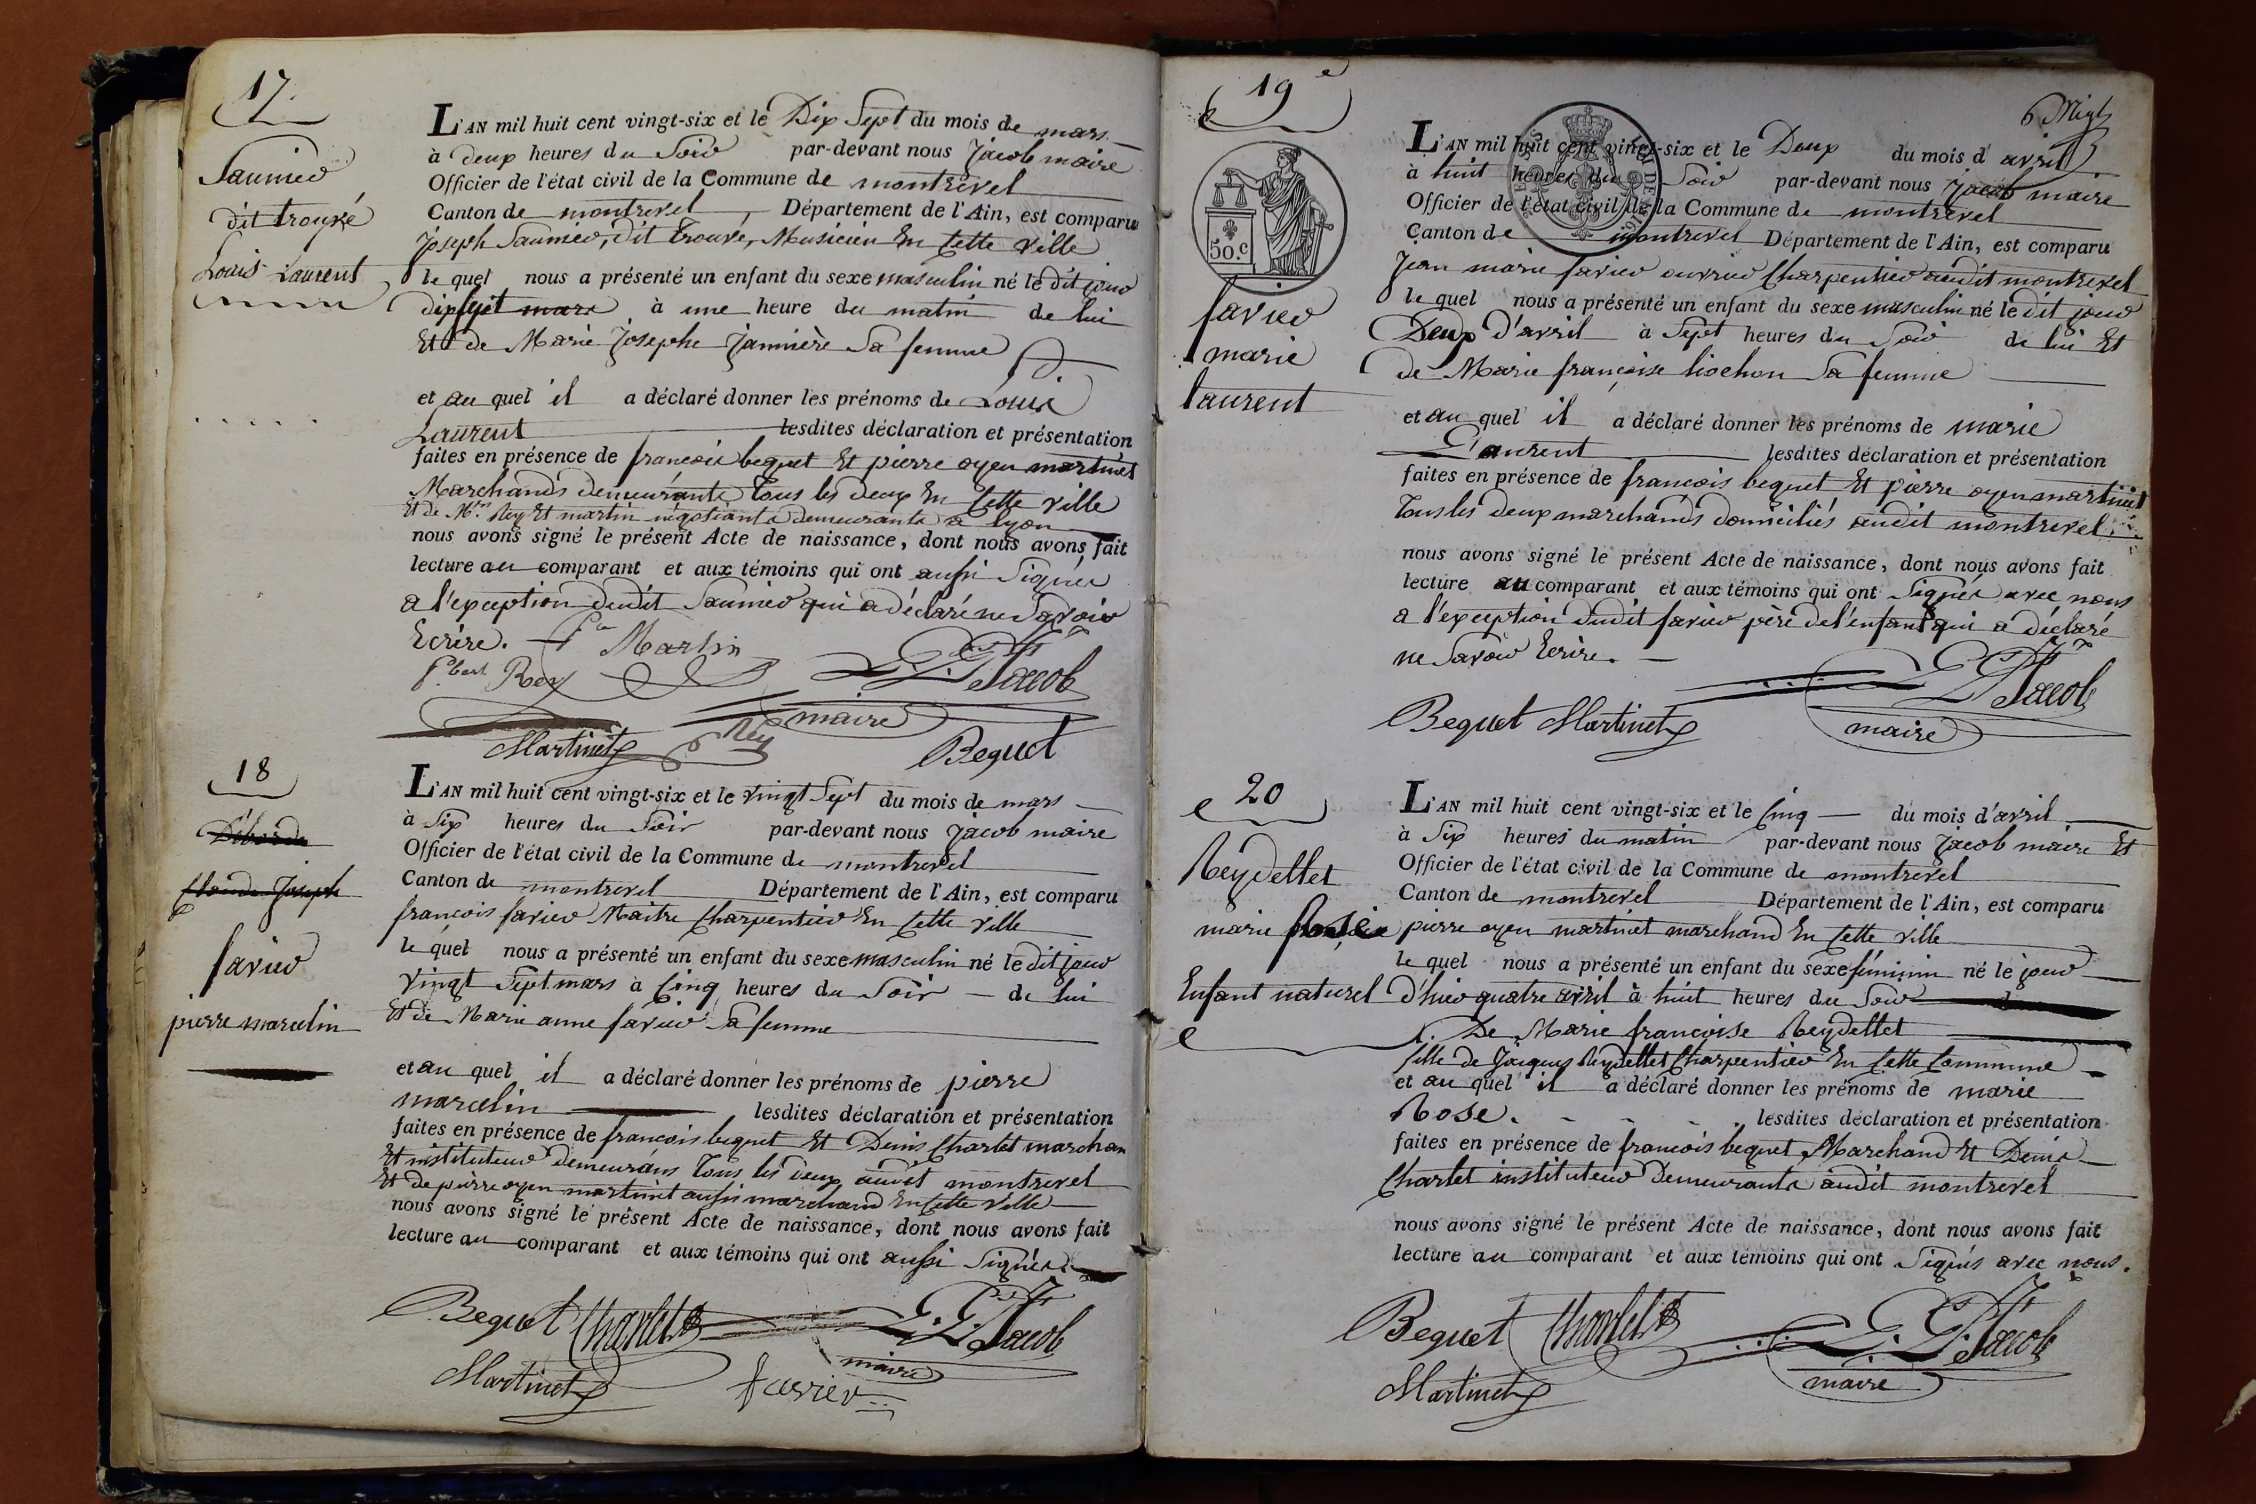 17.
Saunier
dit trouvé
Louis Laurent
L'AN mil huit cent vingt-six et le Dix Sept du mois de mars
à deux heures du Soir par-devant nous Jacob maire
Officier de l'état civil de la Commune de montrevel
Canton de montrevel, Département de l'Ain, est comparu
Joseph Saunier, dit trouvé, Musicien En Cette ville
le quel nous a présenté un enfant du sexe masculin né le dit jour
dix sept mars à une heure du matin de lui
Et de Marie Josephe Jannière Sa femme
et au quel il a déclaré donner les prénoms de Louis
Laurent lesdites déclaration et présentation
faites en présence de francois bequet Et pierre oyen martinet
Marchands demeurants tous les deux En Cette ville
et de Mrs Rey Et martin négotiants demeurants a lyon
nous avons signé le présent Acte de naissance, dont nous avons fait
lecture au comparant et aux témoins qui ont aussi Signés
a l'exception dudit Saunier qui a déclaré ne Savoir
Ecrire. Martin
Rey Jacob
maire
Martinet Rey Bequet
18
Déborde
Claude Joseph
favier
pierre marcelin
L'AN mil huit cent vingt-six et le vingt Sept du mois de mars
à Six heures du Soir par-devant nous Jacob maire
Officier de l'état civil de la Commune de montrevel
Canton de montrevel Département de l'Ain, est comparu
françois favier Maitre Charpentier En Cette ville
le quel nous a présenté un enfant du sexe masculin né le dit jour
vingt Sept mars à Cinq heures du Soir de lui
Et de Marie anne favier Sa femme
et au quel il a déclaré donner les prénoms de pierre
marcelin lesdites déclaration et présentation
faites en présence de francois bequet Et Denis Charlet marchan
Et instituteur demeurans tous les deux audit montrevel
Et de pierre oyen martinet aussi marchand En Cette ville
nous avons signé le présent Acte de naissance, dont nous avons fait
lecture au comparant et aux témoins qui ont aussi Signés.
Bequet Charlet Jacob
maire
Martinet favier
19e
50.c
favier
marie
laurent
L'AN mil huit cent vingt-six et le Deux du mois d'avril
à huit heures du Soir par-devant nous Jacob maire
Officier de l'état civil de la Commune de montrevel
Canton de montrevel Département de l'Ain, est comparu
Jean marie favier ouvrier Charpentier audit montrevel
le quel nous a présenté un enfant du sexe masculin né le dit jour
Deux d'avril à Sept heures du Soir de lui Et
de Marie françoise liochon Sa femme
et au quel il a déclaré donner les prénoms de marie
Laurent lesdites déclaration et présentation
faites en présence de francois bequet Et pierre oyen martinet
tous les deux marchands domiciliés audit montrevel.
nous avons signé le présent Acte de naissance, dont nous avons fait
lecture au comparant et aux témoins qui ont Signés avec nous
a l'exception dudit favier père de l'enfant qui a déclaré
ne Savoir Ecrire.
Jacob
Bequet Martinet maire
20
Reydellet
marie Rose
Enfant naturel
L'AN mil huit cent vingt-six et le Cinq du mois d'avril
à Six heures du matin par-devant nous Jacob maire Et
Officier de l'état civil de la Commune de montrevel
Canton de montrevel Département de l'Ain, est comparu
pierre oyen martinet marchand En Cette ville
le quel nous a présenté un enfant du sexe féminin né le jour
d'hier quatre avril à huit heures du Soir
De Marie françoise Reydellet
fille de Jacques Reydellet Charpentier En Cette Commune
et au quel il a déclaré donner les prénoms de marie
Rose. lesdites déclaration et présentation
faites en présence de francois bequet Marchand Et Denis
Charlet instituteur Demeurants audit montrevel
nous avons signé le présent Acte de naissance, dont nous avons fait
lecture au comparant et aux témoins qui ont Signés avec nous.
Bequet Charlet Jacob
maire
Martinet